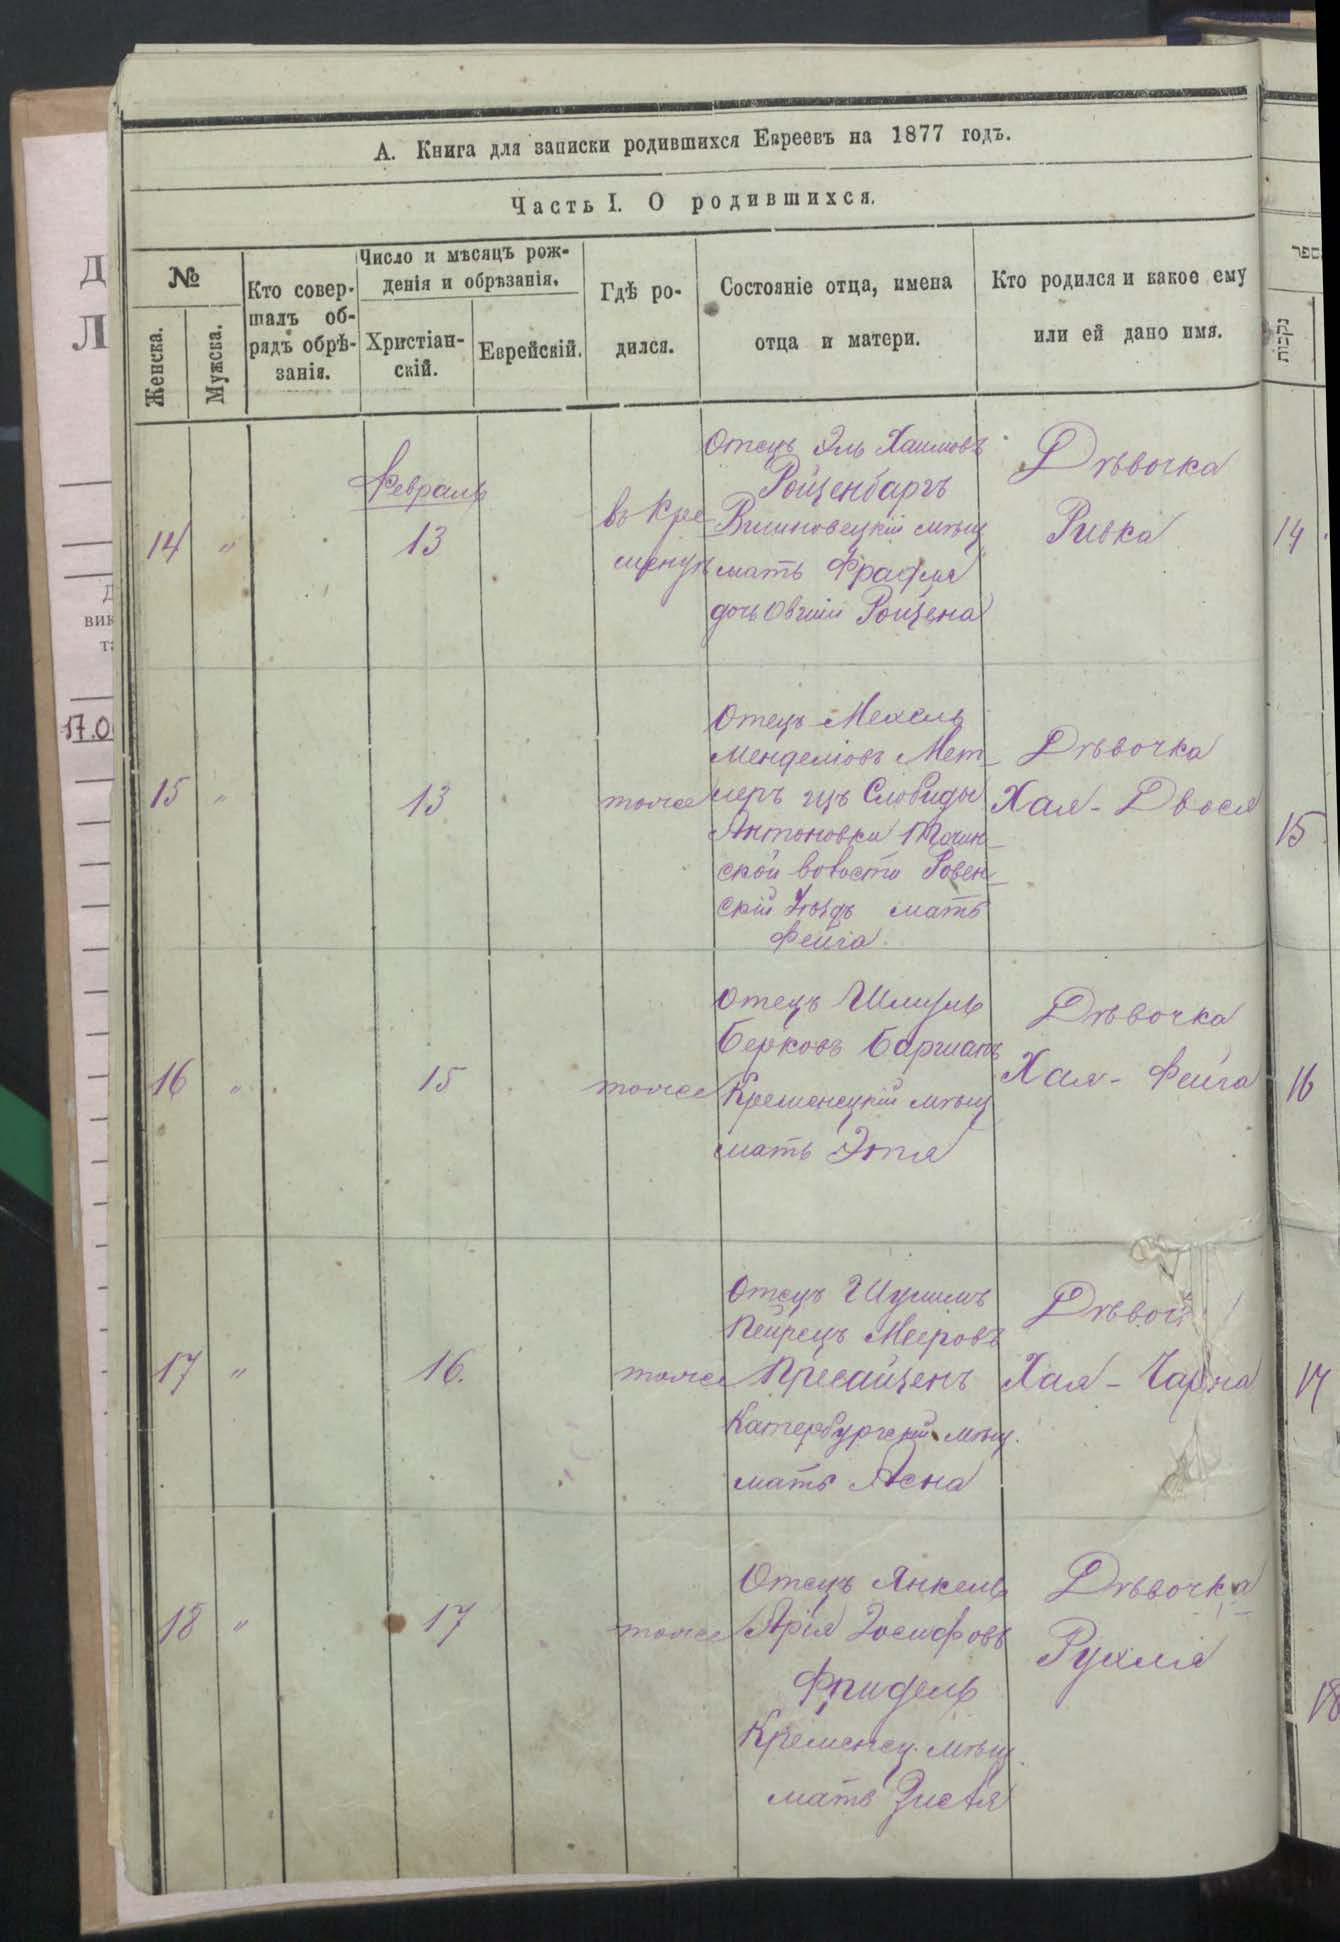 А. Книга для записки родившихся Евреевъ на 1877 годъ.
Часть I. О родившихся.
№
Женска.
Мужска.
Кто совер-
шалъ об-
рядъ обрѣ-
занія.
Число и мѣсяцъ рож-
денія и обрѣзанія.
Христіан-
скій.
Еврейскій.
Гдѣ ро-
дился.
Состояніе отца, имена
отца и матери.
Кто родился и какое ему
или ей дано имя.
נקבות
14
"
Февраль
13
въ Кре
менцѣ
Отецъ Эль Хаимовъ
Ройзенбаргъ
Вишновецкій мѣщ
мать Фрадля
дочь Овшій Ройзена
Дѣвочка
Ривка
14
15
"
13
тоже
Отецъ Мехель
Менделіовъ Мет-
леръ изъ Слободы
Антоновки Тучин-
ской волости Ровен-
скій Уѣздъ мать
Фейга
Дѣвочка
Хая-Двося
15
16
"
15
тоже
Отецъ Шмуль
Берковъ Барманъ
Кременецкій мѣщ
мать Этя
Дѣвочка
Хая-Фейга
16
17
"
16.
тоже
Отецъ Шулимъ
Пейрецъ Мееровъ
Пресайзенъ
Катербургскій мѣщ.
мать Ясна
Дѣвоч
Хая-Чарна
17
18
"
17
тоже
Отецъ Янкель
Арія Іосифовъ
Фридель
Кременец. мѣщ.
мать Зисля
Дѣвочка
Рухля
18
17.0